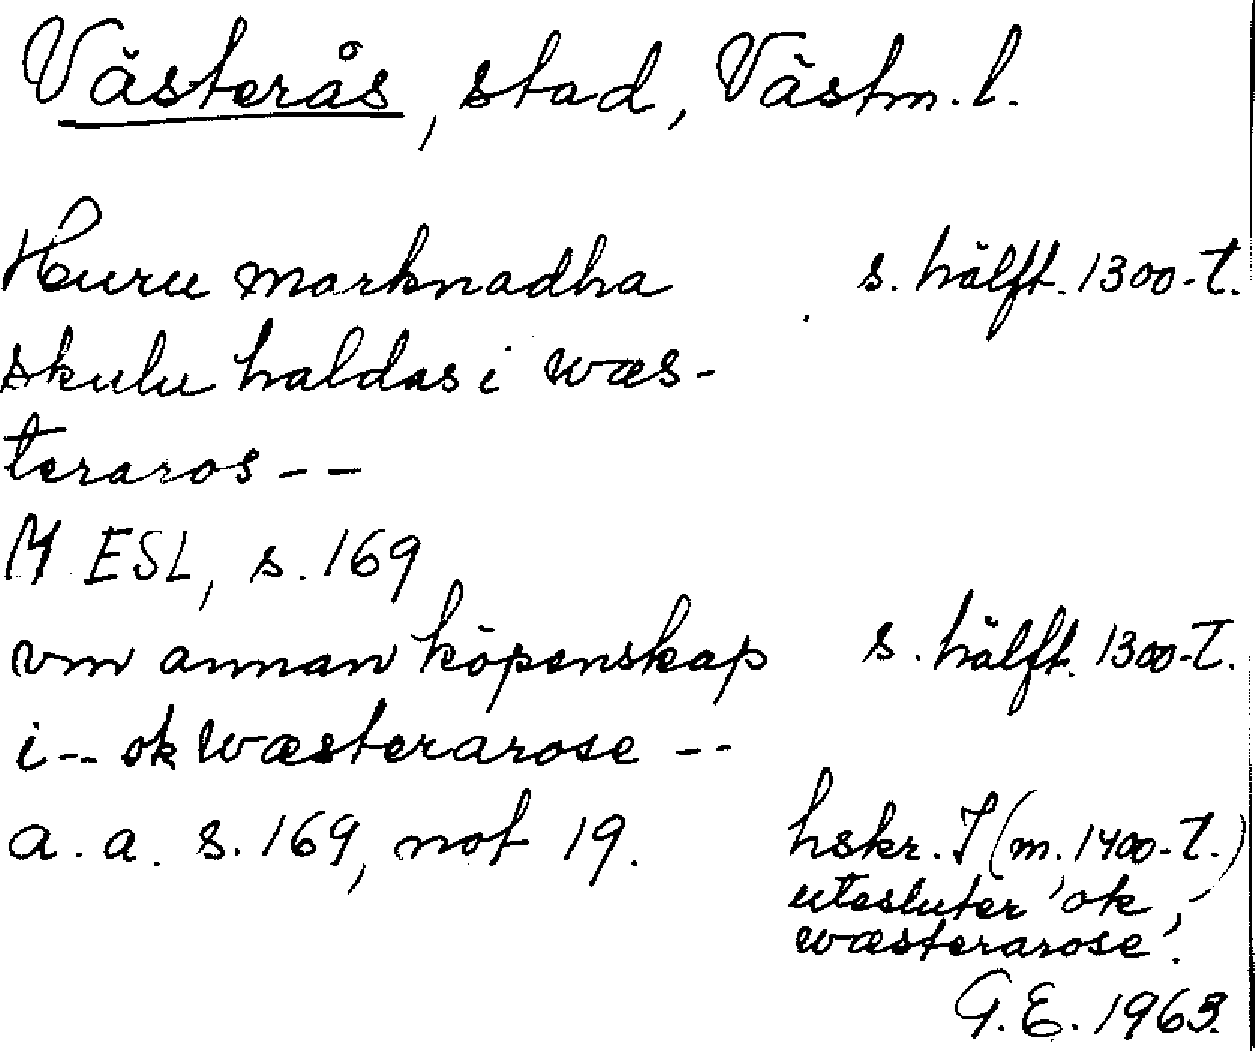 Västerås, stad, Västm. l.
Huru marknadha s. hälft. 1300-t.
skulu haldas i wæs-
teraros - -
M ESL, s. 169
vm annan köpenskap s. hälft. 1300-t.
i -- ok wæsterarose --
a. a. s. 169, not 19. hskr. I (m. 1400-t.)
utesluter 'ok
wæsterarose'.
G. E. 1963.